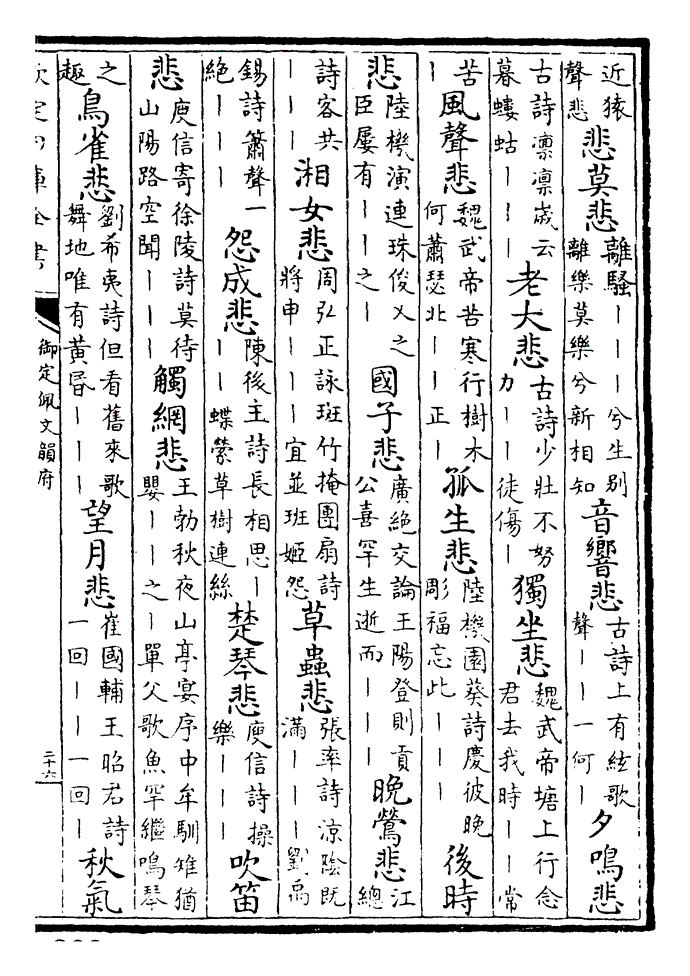 近猿聲悲 悲莫悲 離騷｜｜｜兮生别離樂莫樂兮新相知 音響悲 古詩上有絃歌聲｜｜一何｜ 夕鳴悲
古詩凛凛嵗云暮螻蛄｜｜｜ 老大悲 古詩少壯不努力｜｜徒傷｜ 獨坐悲 魏武帝塘上行念君去我時｜｜常
苦｜ 風聲悲 魏武帝苦寒行樹木何蕭瑟北｜｜正｜ 孤生悲 陸機園葵詩慶彼晚彫福忘此｜｜｜ 後時
悲 陸機演連珠俊乂之臣屢有｜｜之｜ 國子悲 廣絶交論王陽登則貢公喜罕生逝而｜｜｜ 晚鶯悲 江總
詩客共｜｜｜ 湘女悲 周弘正詠班竹掩團扇詩將申｜｜｜宜並班姬怨 草蟲悲 張率詩涼陰既滿｜｜｜劉禹
錫詩簫聲一絶｜｜｜ 怨成悲 陳後主詩長相思｜｜｜蝶縈草樹連絲 楚琴悲 庾信詩操樂｜｜｜ 吹笛
悲 庾信寄徐陵詩莫待山陽路空聞｜｜｜ 觸網悲 王勃秋夜山亭宴序中牟馴雉猶嬰｜｜之｜單父歌魚罕繼鳴琴
之趣 鳥雀悲 劉希夷詩但看舊來歌舞地唯有黄昏｜｜｜ 望月悲 崔國輔王昭君詩一回｜｜一回｜ 秋氣
欽定四庫全書
御定佩文韻府
二十六